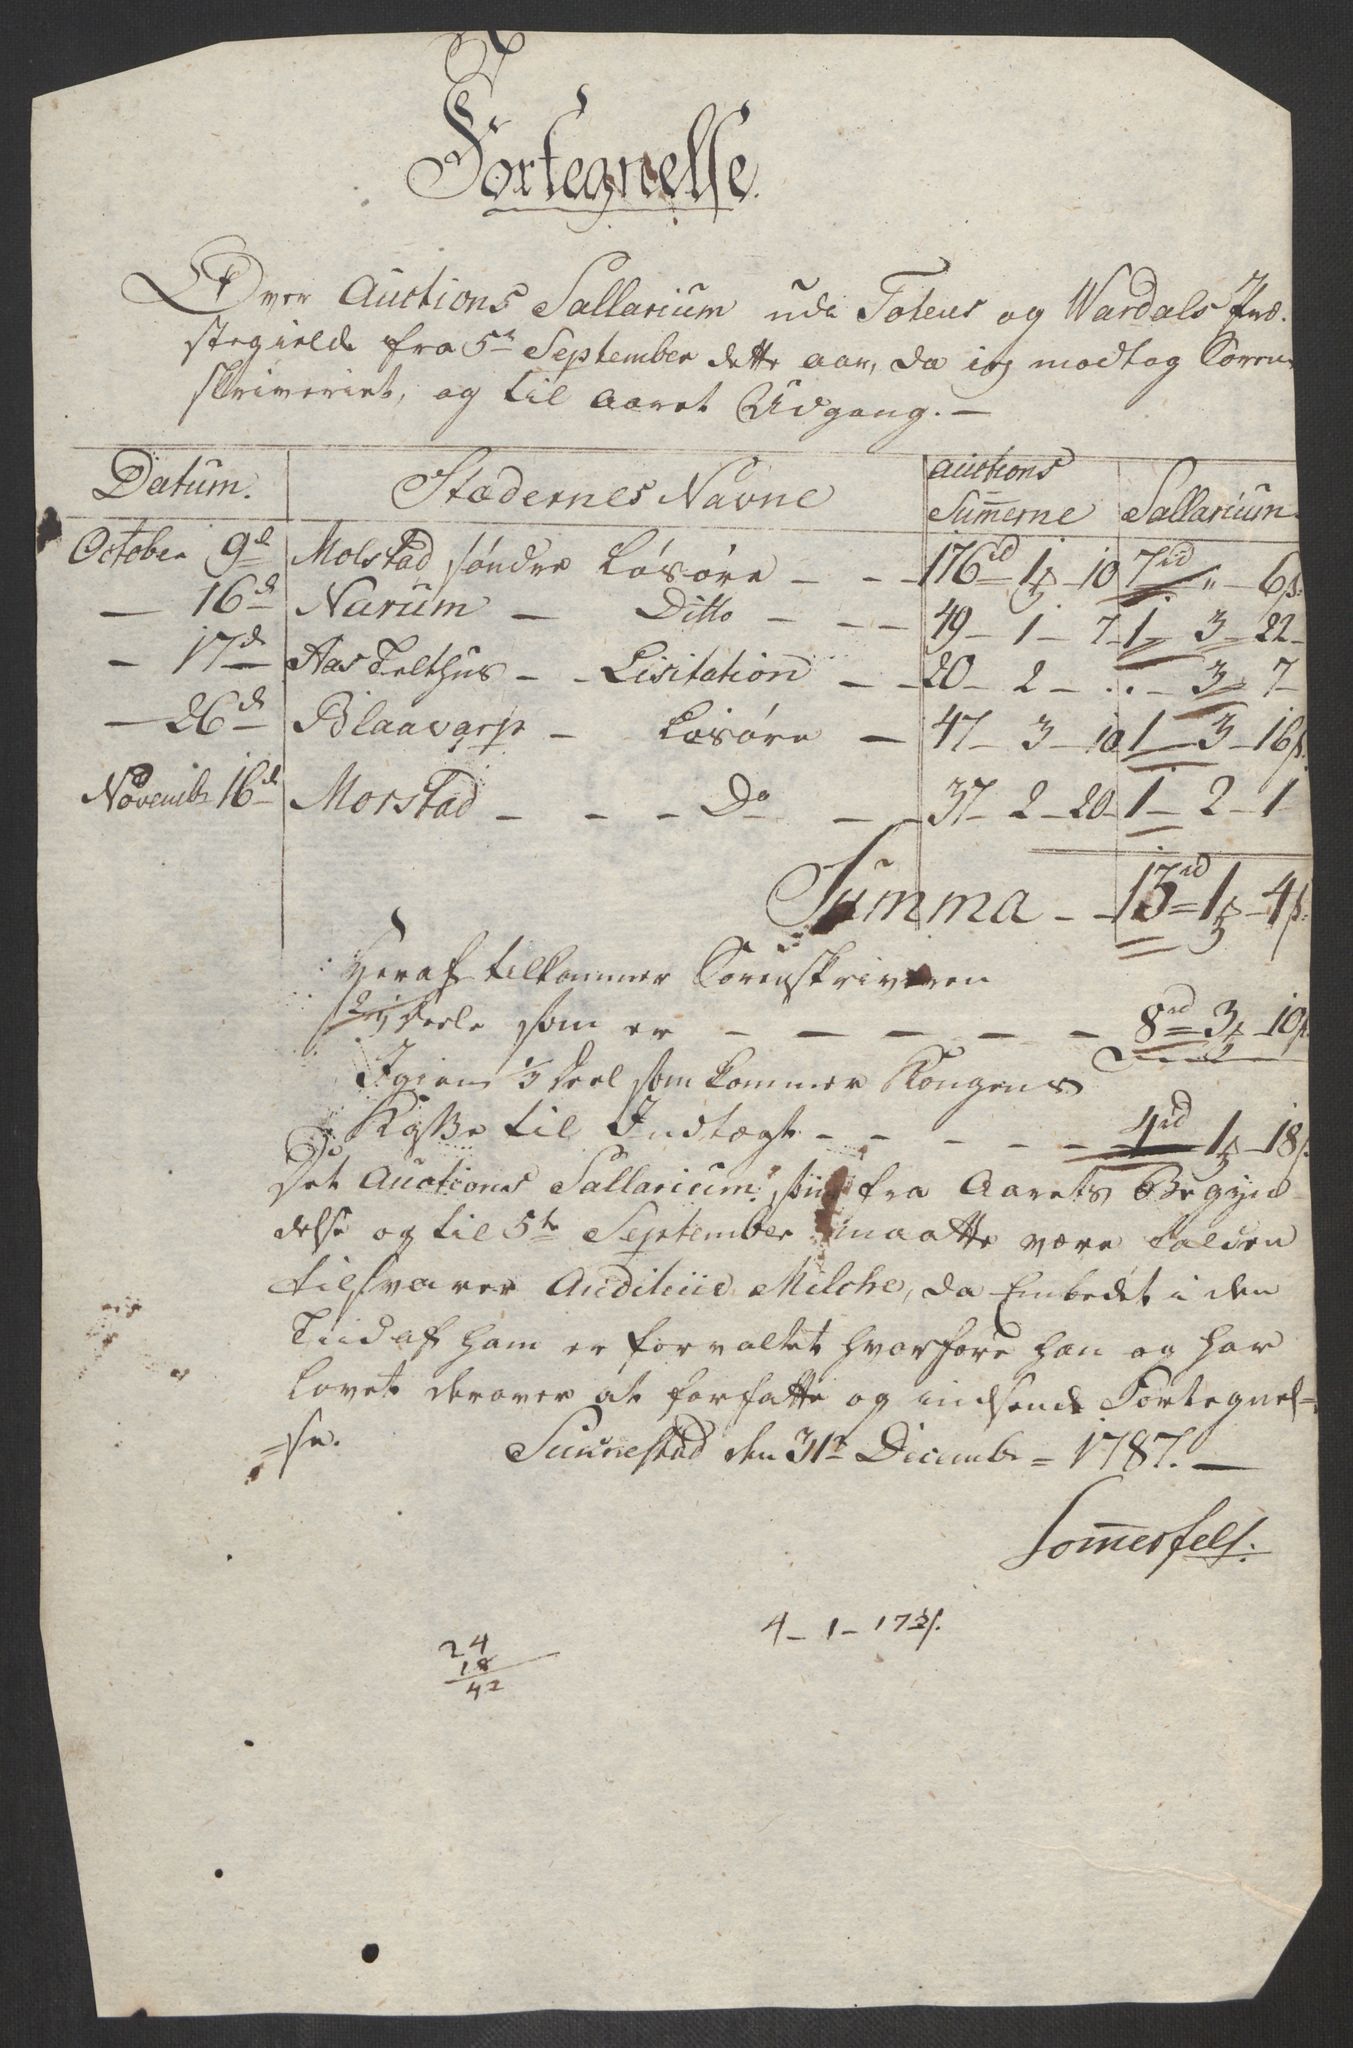 Fortegnelse
Over Auctions Sallarium udi Totens og Wardals Præ-
stegield fra 5te September dette aar, da ieg modtog Soren-
skriveriet, og til Aarets Udgang. —
Datum. Stædernes Navne Auctions Sum̅erne Sallarium
October 9de Molstad søndre Løsøre — — — 176rd 1 ß — 10 7rd „ — 6ß.
— 16de Narum — Ditto — — — 49 — 1 — 7 — 1 — 3 — 22 —
— 17de Aas Telthus — — Lisitation — — 20 — 2 — . . — 3 — 7 —
— 26de Blaavarp — Løsøre — 47 — 3 — 10 1 — 3 — 16ß.
Novembr 16de Morstad — — — Do — — 37 — 2 — 20 — 1 — 2 — 1
Summa — — 13rd 1 — 4ß.
Heraf tilkommer Sorenskriveren
2/3 Deele som er — — — — — 8rd 3 — 10ß
Igien 1/3 Deel som kommer Kongens
Kasse til Indtægt — — — — — 4rd 1 — 18ß.
Det Auctions Sallarium som fra Aarets Begyn-
delse og til 5te September maatte være falden
tilsvarer Auditeur Milche, da Embedet i den
Tiid af ham er forvaltet hvorfore han og har
lovet derover at forfatte og indsende Fortegnel-
=se. Sunnestad den 31te Decembr = 1787. —
Som̅erfelt.
4 — 1 — 17 ß.
24
18
42